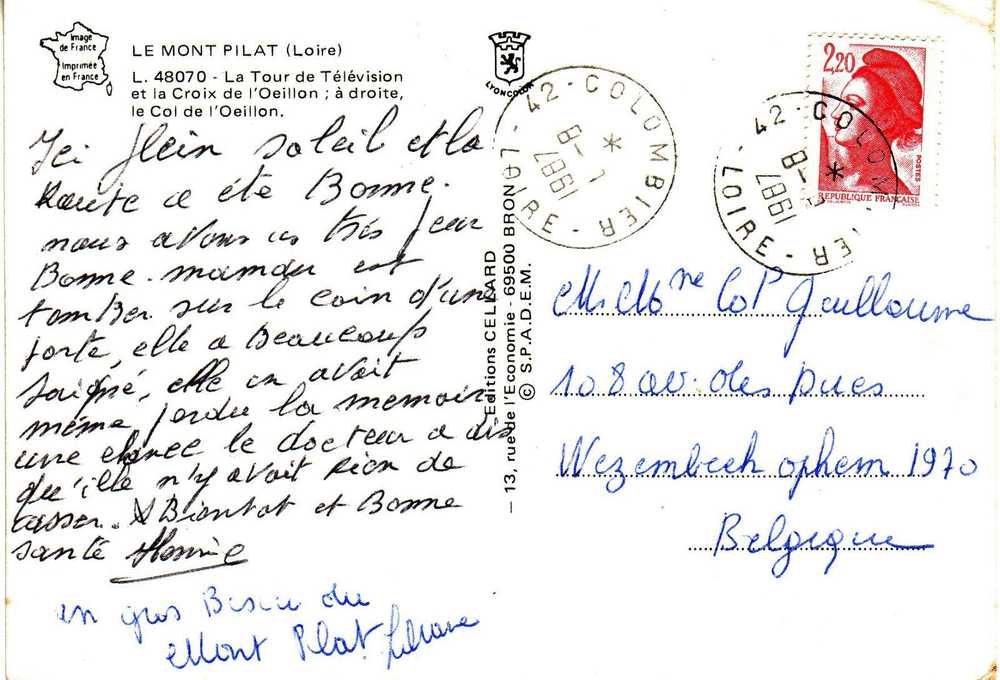 Image
de France
Imprimée
en France
LE MONT PILAT (Loire)
L. 48070 - La Tour de Télévision
et la Croix de l'Oeillon ; à droite,
le Col de l'Oeillon.
Ici plein soleil et la
Route a été Bonne.
nous avons us très peur
Bonne-maman est
tomber sur le coin d'une
porte, elle a Beaucoup
saigné, elle en avait
même perdu la memoire
une chance le docteur a dis
qu'ille n'y avait Rien de
casser. A Biontot et Bonne
santé
en gros Bisou du
Mont Pilat
LYONCOLOR
Editions CELLARD
13, rue de l'Economie - 69500 BRON
© S.P.A.D.E.M.
42 - COLOMBIER - LOIRE
1-8
1987
2,20
POSTES
REPUBLIQUE FRANÇAISE
42 - COLOMBIER - LOIRE
-8
1987
M. Mme Guillaume
108 av. des
Wezembeek ophem 1970
Belgique